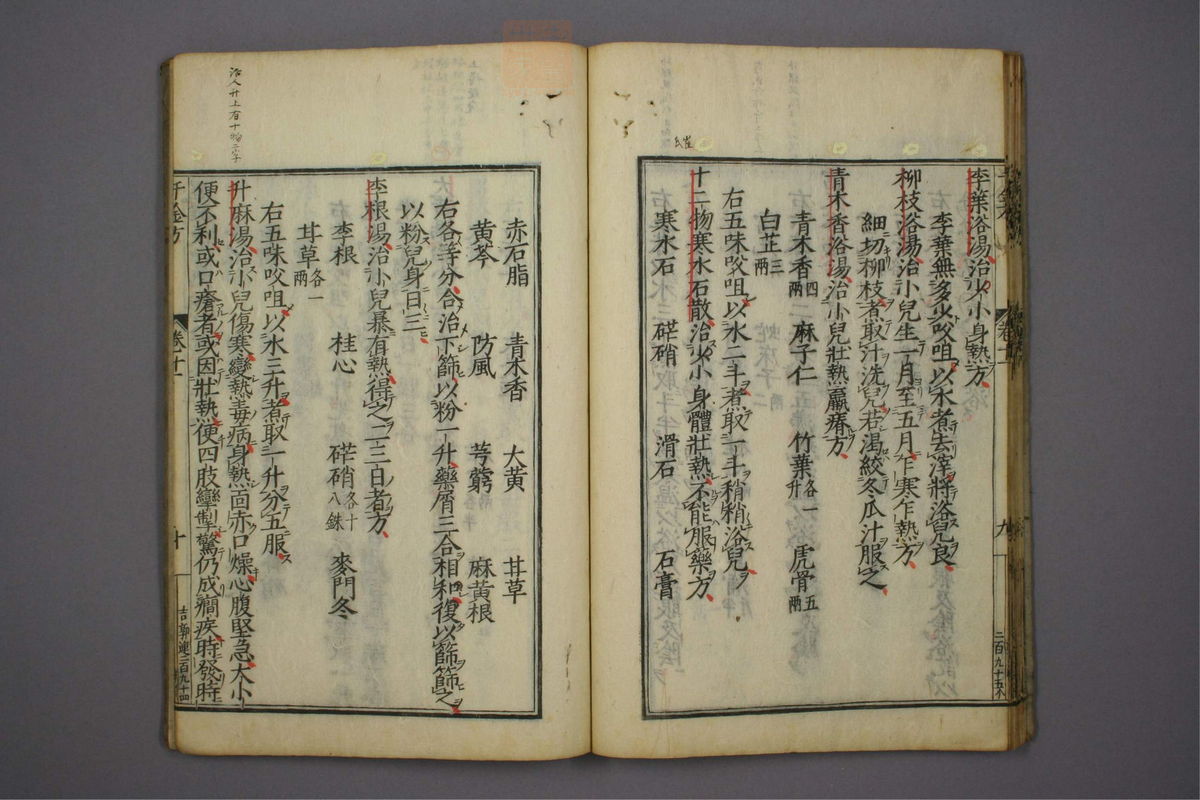 崔氏
李葉浴湯治少小身熱方
李葉無多少㕮咀以水煮去滓將浴兒良
柳枝浴湯治小兒生一月至五月乍寒乍熱方
細切柳枝煮取汁洗兒若渴絞冬瓜汁服之
青木香浴湯治小兒壯熱羸瘠方
青木香四兩 麻子仁 竹葉各一升 虎骨五兩
白芷三兩
右五味㕮咀以水二斗煮取一斗稍稍浴兒
十二物寒水石散治少小身體壯熱不能服藥方
寒水石 硭硝 滑石 石膏
赤石脂 青木香 大黃 甘草
黃芩 防風 芎藭 麻黃根
右各等分合治下篩以粉一升藥屑三合相和復以篩篩之
以粉兒身日三
李根湯治小兒暴有熱得之二三日者方
李根 桂心 硭硝各十八銖 麥門冬
甘草各一兩
右五味㕮咀以水三升煮取一升分五服
升麻湯治小兒傷寒變熱毒病身熱面赤口燥心腹堅急大小
便不利或口瘡者或因壯熱便四肢攣掣驚仍成癇疾時發時
千金方 卷十一 十
二百九十四